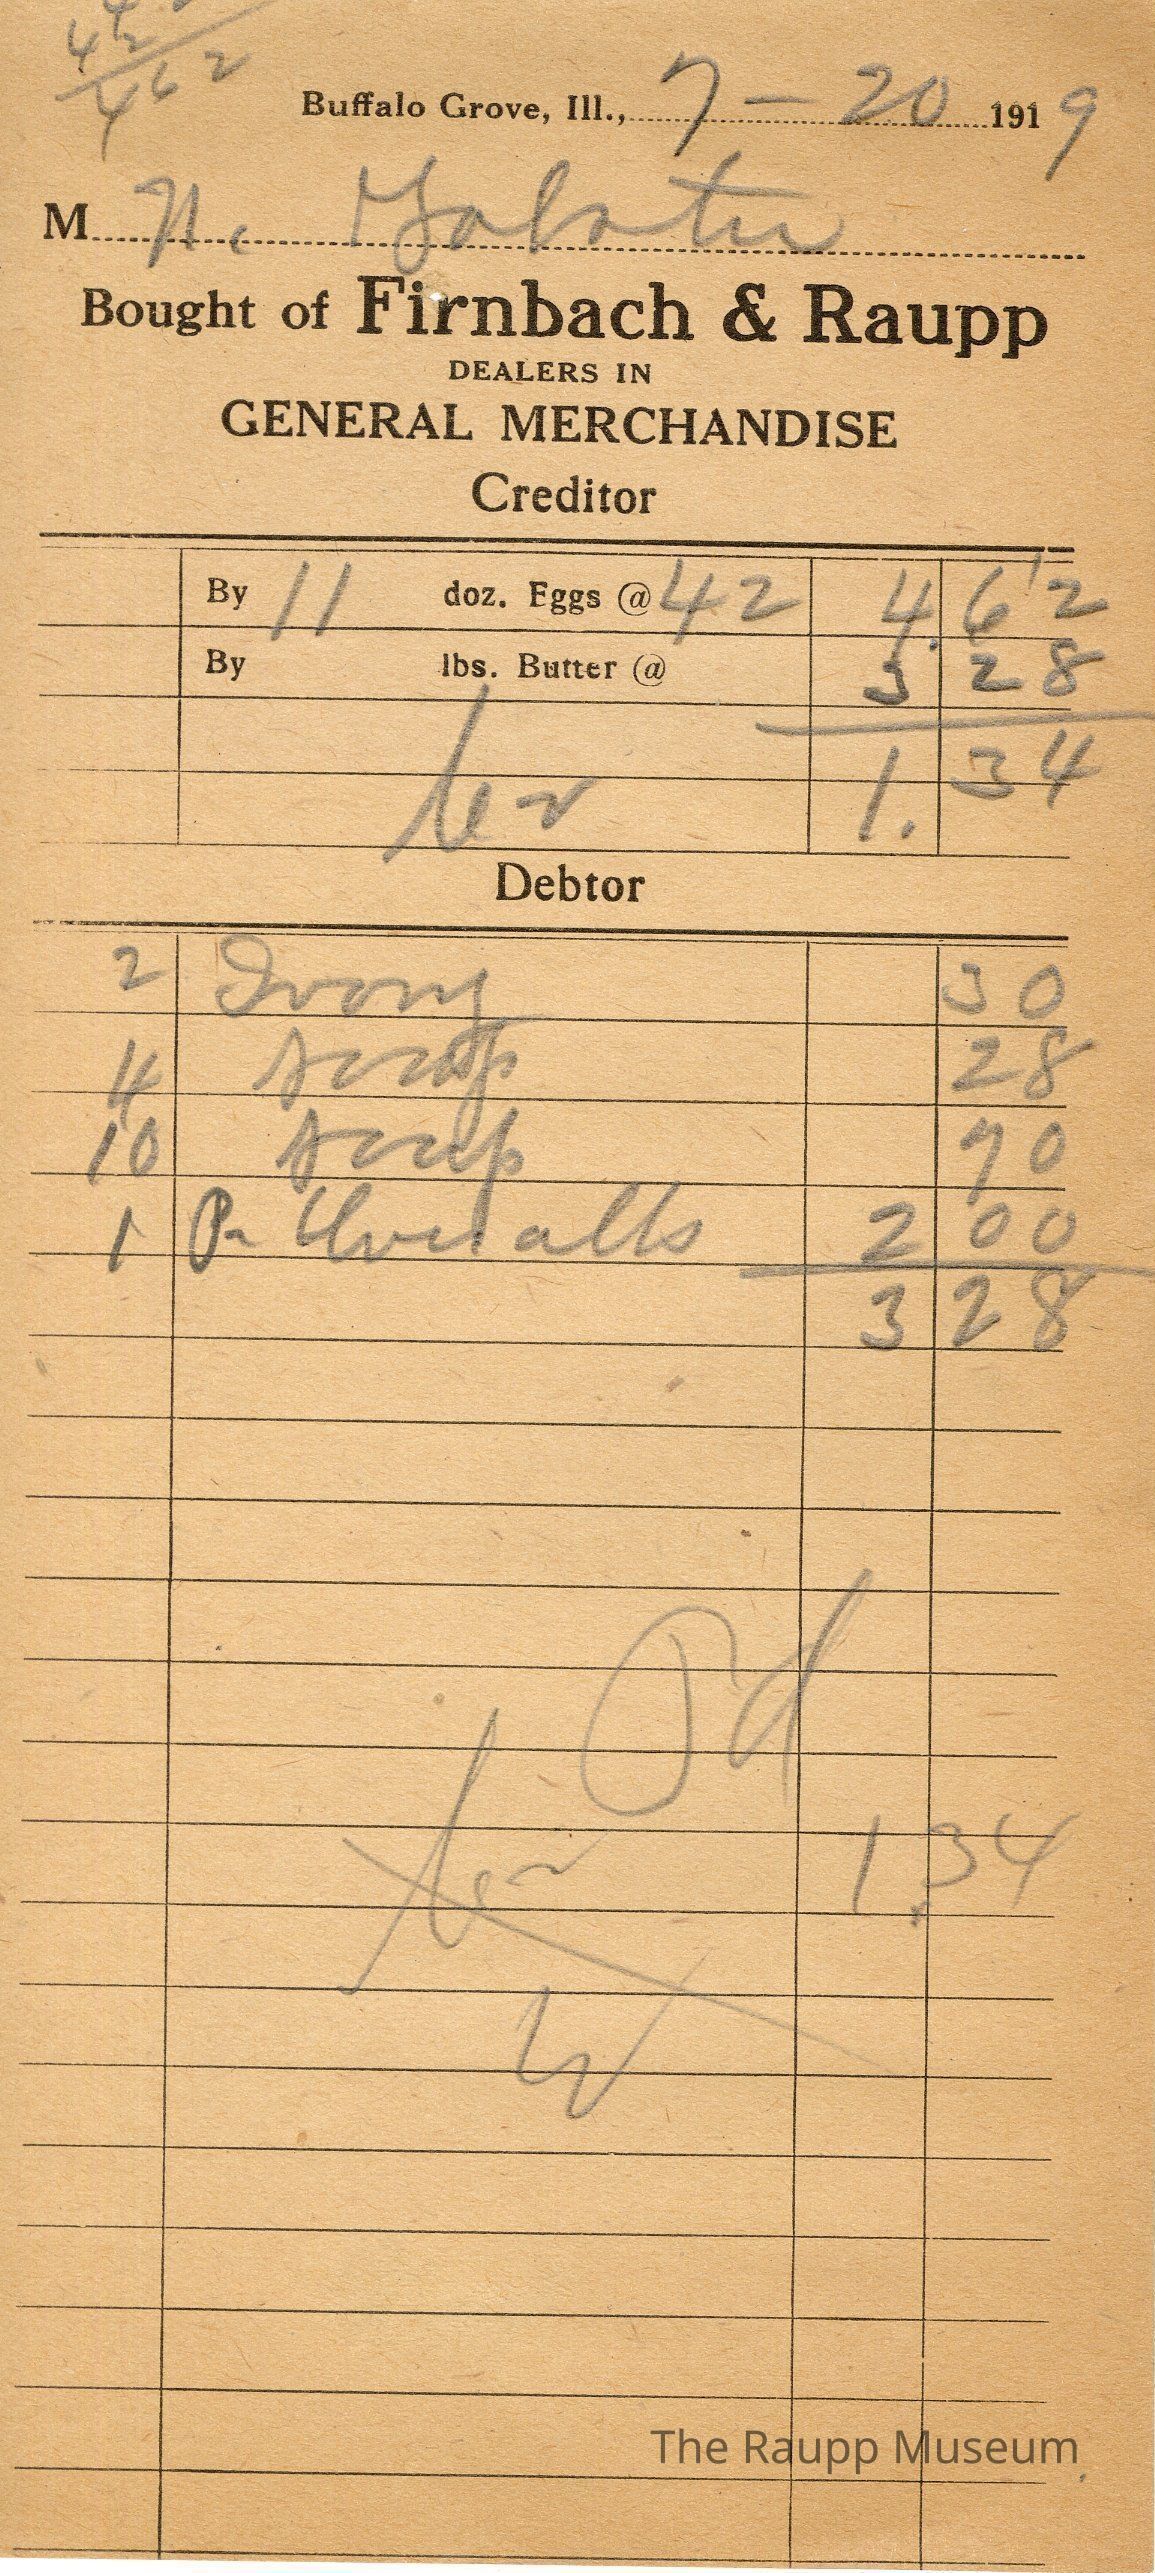 42
462
Buffalo Grove, Ill., 7 — 20 1919
M N.
Bought of Firnbach & Raupp
DEALERS IN
GENERAL MERCHANDISE
Creditor
By 11 doz. Eggs @ 42 4.62
By lbs. Butter @ 3 28
Cr 1.34
Debtor
2 Ivory 30
4 soap 28
10 soap 70
1 Pr Overalls 2 00
3 28
Pd
Cr 1.34
The Raupp Museum